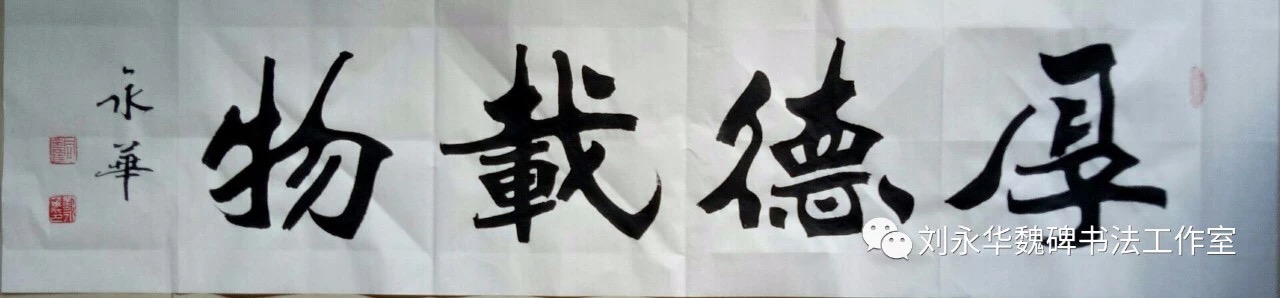 厚德載物
永華
刘永华魏碑书法工作室